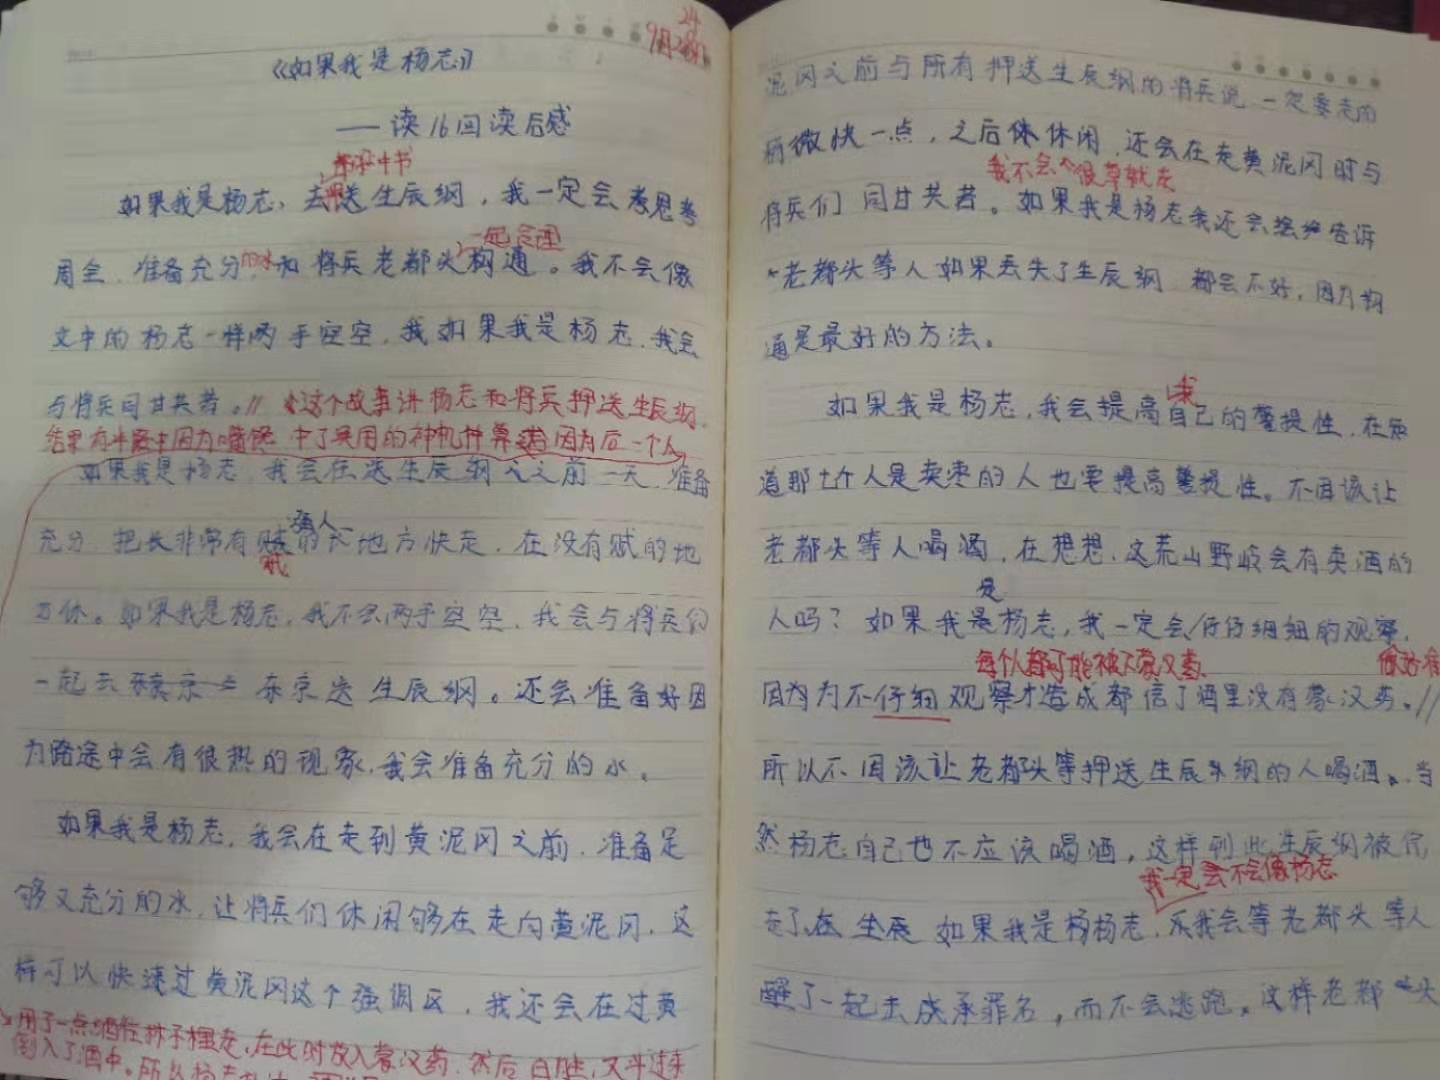 24
9月
《如果我是杨志》
——读16回读后感
如果我是杨志,去送生辰纲,我一定会考思考
周全,准备充分的水和将兵老都头沟通。我不会像
一起合理
文中的杨志一样两手空空,我如果我是杨志,我会
与将兵同甘共苦。//《这个故事讲杨志和将兵押送生辰纲,
结果在半路中因为嘴馋 中了吴用的神机妙算 因为后一个人
如果我是杨志,我会在送生辰纲之前一天,准备
强人
充分,把长非常有贼的地方快走,在没有贼的地
贼
方休。如果我是杨志,我不会两手空空,我会与将兵们
一起去东京送生辰纲。还会准备好因
为路途中会有很热的现象,我会准备充分的水。
如果我是杨志,我会在走到黄泥冈之前,准备足
够又充分的水,让将兵们休闲够在走向黄泥冈,这
样可以快速过黄泥冈这个强调区,我还会在过黄
用了一点酒往林子里走,在此时放入蒙汉药,然后白胜,又斗过来
倒入了酒中。所以杨志
泥冈之前与所有押送生辰纲的将兵说一定要走的
稍微快一点,之后休休闲,还会在走黄泥冈时与
我不会 很草就走
将兵们同甘共苦。如果我是杨志我还会告诉
老都头等人如果丢失了生辰纲,都会不好,因为沟
通是最好的方法。
我
如果我是杨志,我会提高自己的警提性,在知
道那七个人是卖枣的人也要提高警提性。不因该让
老都头等人喝酒,在想想,这荒山野岐会有卖酒的
是
人吗?如果我是杨志,我一定会仔仔细细的观察,
每个人都可能被下蒙汉药
因为为不仔细观察才造成都信了酒里没有蒙汉药。//
所以不因该让老都头等押送生辰纲的人喝酒。当
然杨志自己也不应该喝酒,这样到此生辰纲被
我一定会不会像杨志
走了,在生辰 如果我是杨杨志,我会等老都头等人
醒了一起去成承罪名,而不会逃跑。这样老都头